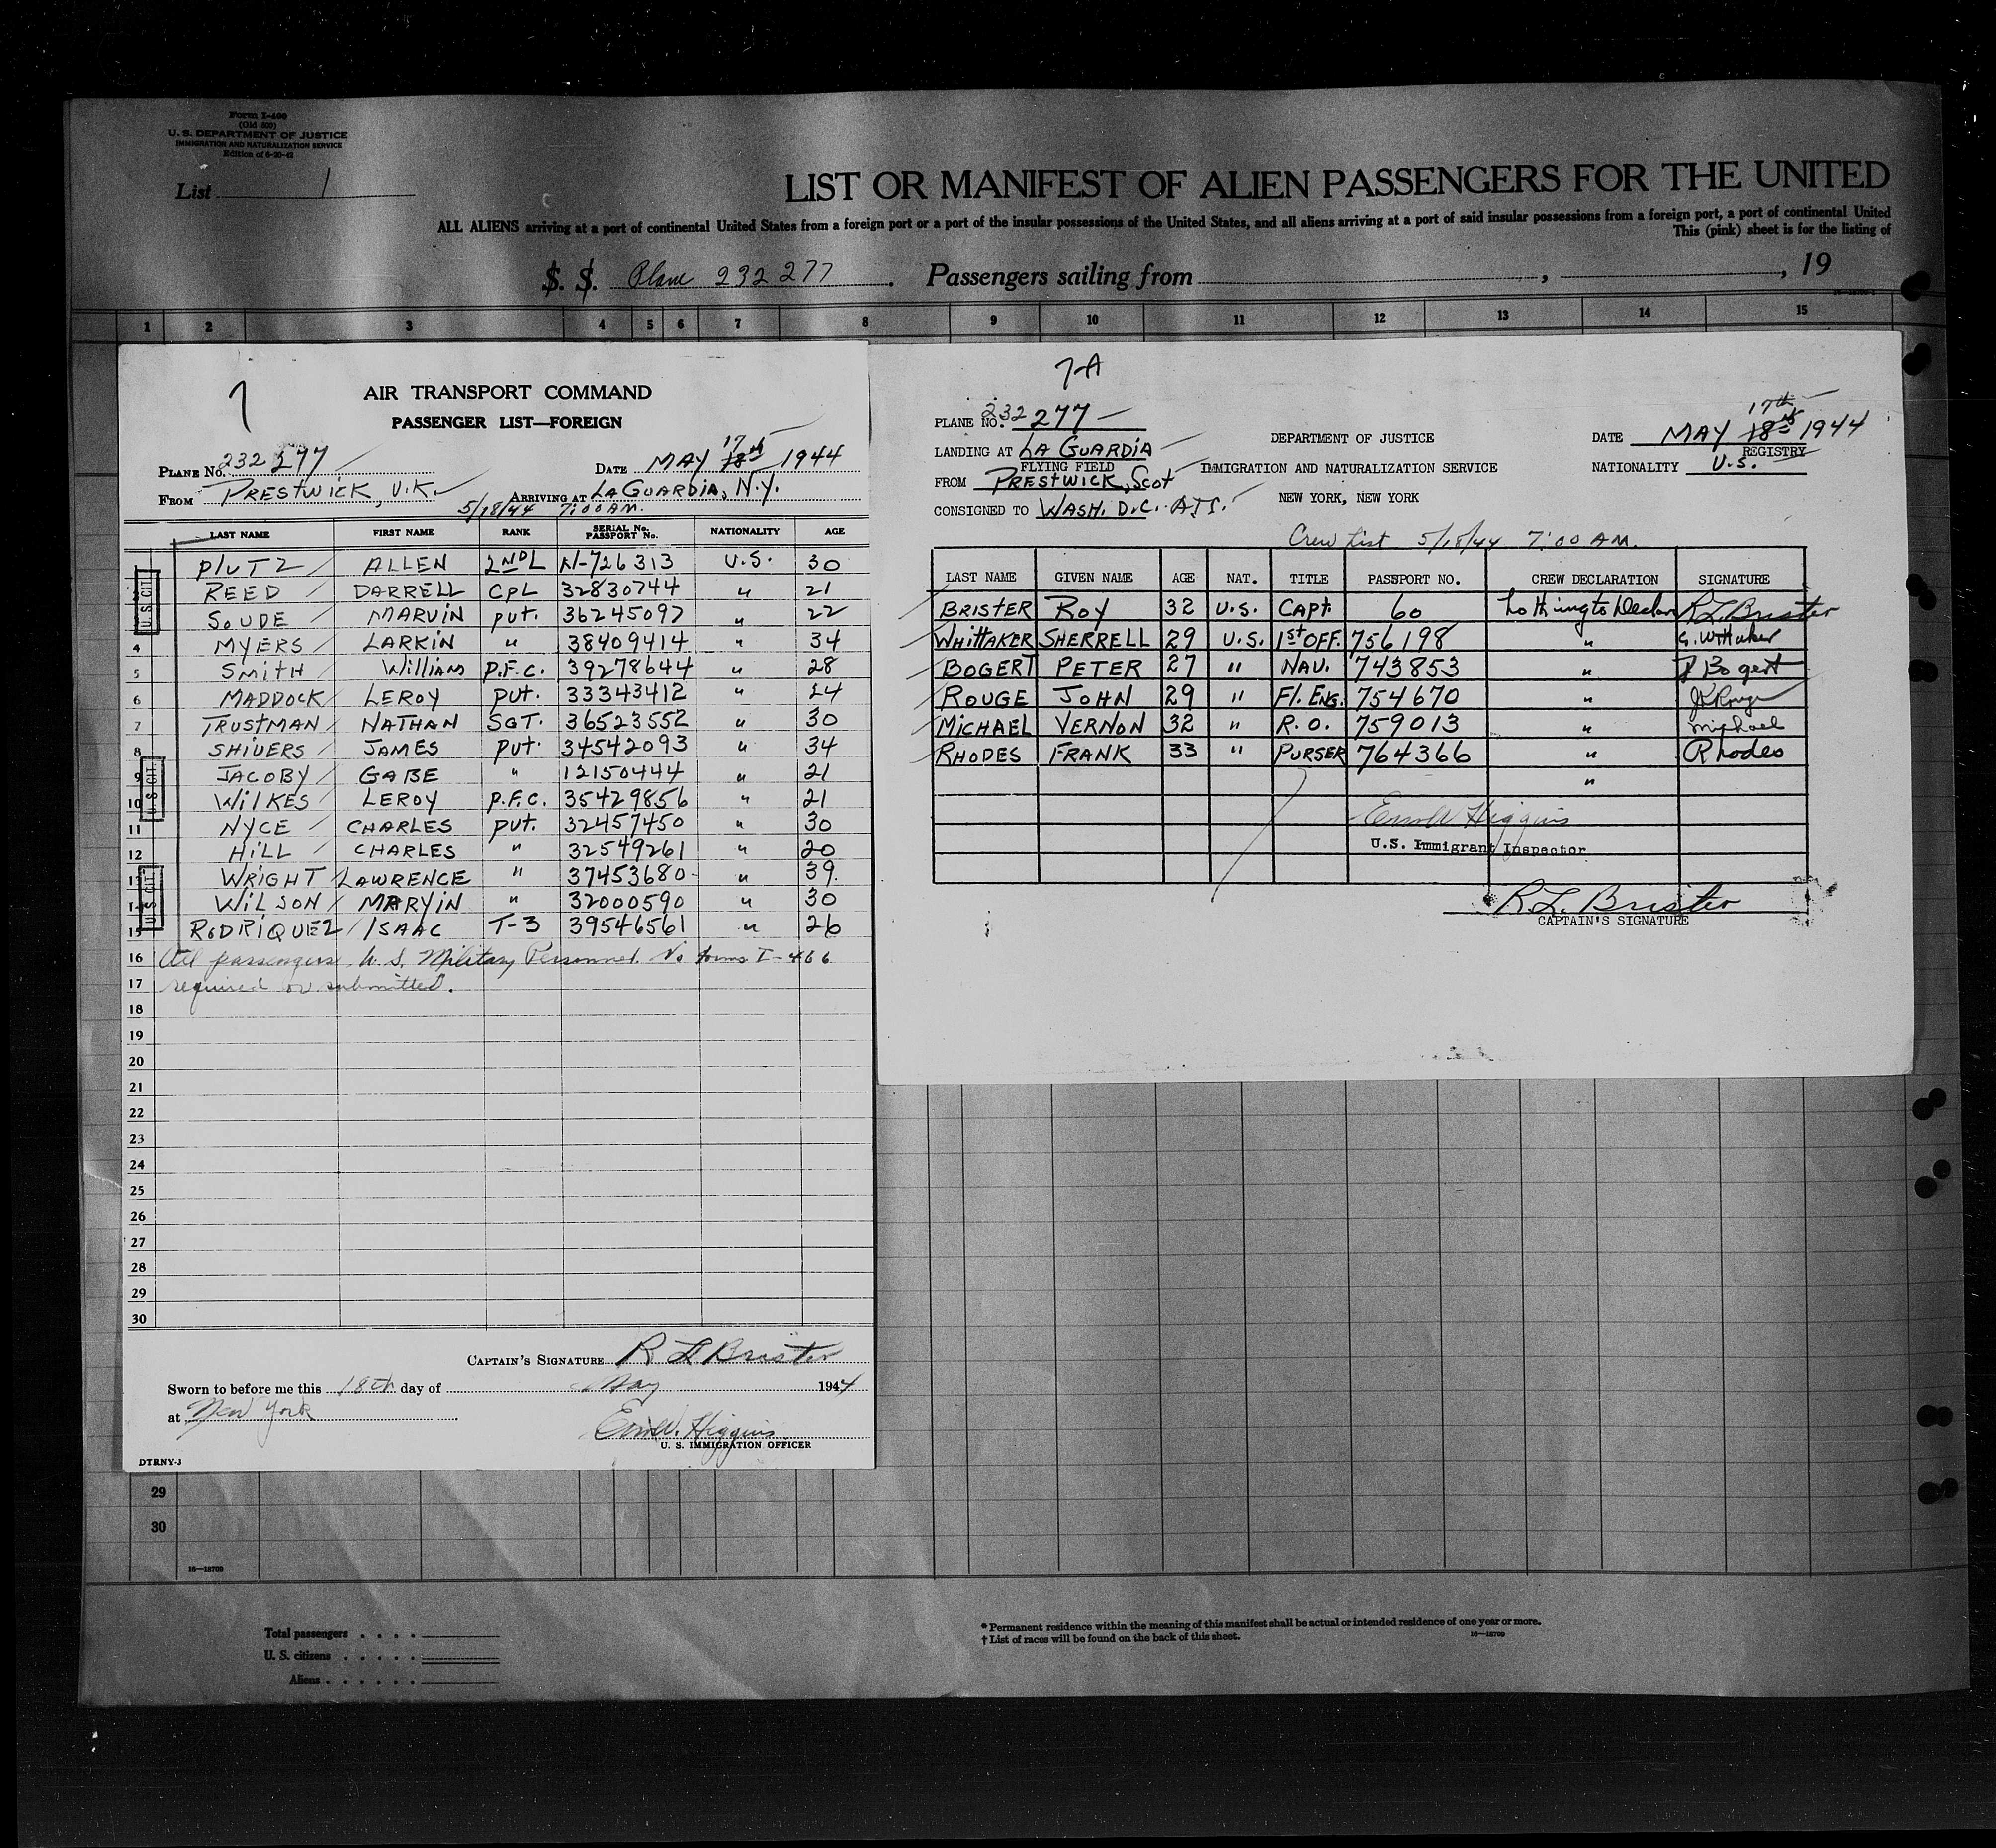 Form I-400
(Old 500)
U. S. DEPARTMENT OF JUSTICE
IMMIGRATION AND NATURALIZATION SERVICE
List 1
LIST OR MANIFEST OF ALIEN PASSENGERS FOR THE UNITED
ALL ALIENS arriving at a port of continental United States from a foreign port or a port of the insular possessions of the United States, and all aliens arriving at a port of said insular possessions from a foreign port, a port of continental United
This (pink) sheet is for the listing of
S. S. Plane 232 277. Passengers sailing from , , 19
1 2 3 4 5 6 7 8 9 10 11 12 13 14 15
7
AIR TRANSPORT COMMAND
PASSENGER LIST—FOREIGN
PLANE No. 232 277 DATE MAY 17 18th 1944
FROM PRESTWICK, U.K. ARRIVING AT LAGUARDIA, N.Y.
5/18/44 7:00 AM.
LAST NAME FIRST NAME RANK SERIAL No. PASSPORT No. NATIONALITY AGE
PLUTZ ALLEN 2ND L N-726313 U.S. 30
REED DARRELL CPL 32830744 " 21
SOUDE MARVIN PVT. 36245097 " 22
4 MYERS LARKIN " 38409414 " 34
5 SMITH William P.F.C. 39278644 " 28
6 MADDOCK LEROY PVT. 33343412 " 24
7 TRUSTMAN NATHAN SGT. 36523552 " 30
8 SHIVERS JAMES PVT. 34542093 " 34
9 JACOBY GABE " 12150444 " 21
10 WILKES LEROY P.F.C. 35429856 " 21
11 NYCE CHARLES PVT. 32457450 " 30
12 HILL CHARLES " 32549261 " 20
13 WRIGHT LAWRENCE " 37453680 " 39
14 WILSON MARVIN " 32000590 " 30
15 RODRIQUEZ ISAAC T-3 39546561 " 26
U.S. CIT.
U.S. CIT.
U.S. CIT.
16 All passengers U.S. Military Personnel. No forms I-466
17 required or submitted.
18
19
20
21
22
23
24
25
26
27
28
29
30
CAPTAIN'S SIGNATURE R L Brister
Sworn to before me this 18th day of May 1944
at New York
Higgins
U. S. IMMIGRATION OFFICER
DTRNY-3
7-A
PLANE NO. 232 277
LANDING AT LA GUARDIA
FLYING FIELD
FROM PRESTWICK, Scot
CONSIGNED TO WASH. D.C.
DEPARTMENT OF JUSTICE
IMMIGRATION AND NATURALIZATION SERVICE
NEW YORK, NEW YORK
17th
DATE MAY 18th 1944
REGISTRY
NATIONALITY U.S.
Crew List 5/18/44 7:00 AM.
LAST NAME GIVEN NAME AGE NAT. TITLE PASSPORT NO. CREW DECLARATION SIGNATURE
BRISTER ROY 32 U.S. CAPT. 60 No things to Declare R.L. Brister
WHITTAKER SHERRELL 29 U.S. 1st OFF. 756198 " S. Whittaker
BOGERT PETER 27 " NAV. 743853 " P Bogert
ROUGE JOHN 29 " Fl. ENG. 754670 " JK Rouge
MICHAEL VERNON 32 " R.O. 759013 " Michael
RHODES FRANK 33 " PURSER 764366 " Rhodes
"
Higgins
U.S. Immigrant Inspector
R.L. Brister
CAPTAIN'S SIGNATURE
29
30
16—18709
Total passengers
U. S. citizens
Aliens
* Permanent residence within the meaning of this manifest shall be actual or intended residence of one year or more.
† List of races will be found on the back of this sheet.
16—18709